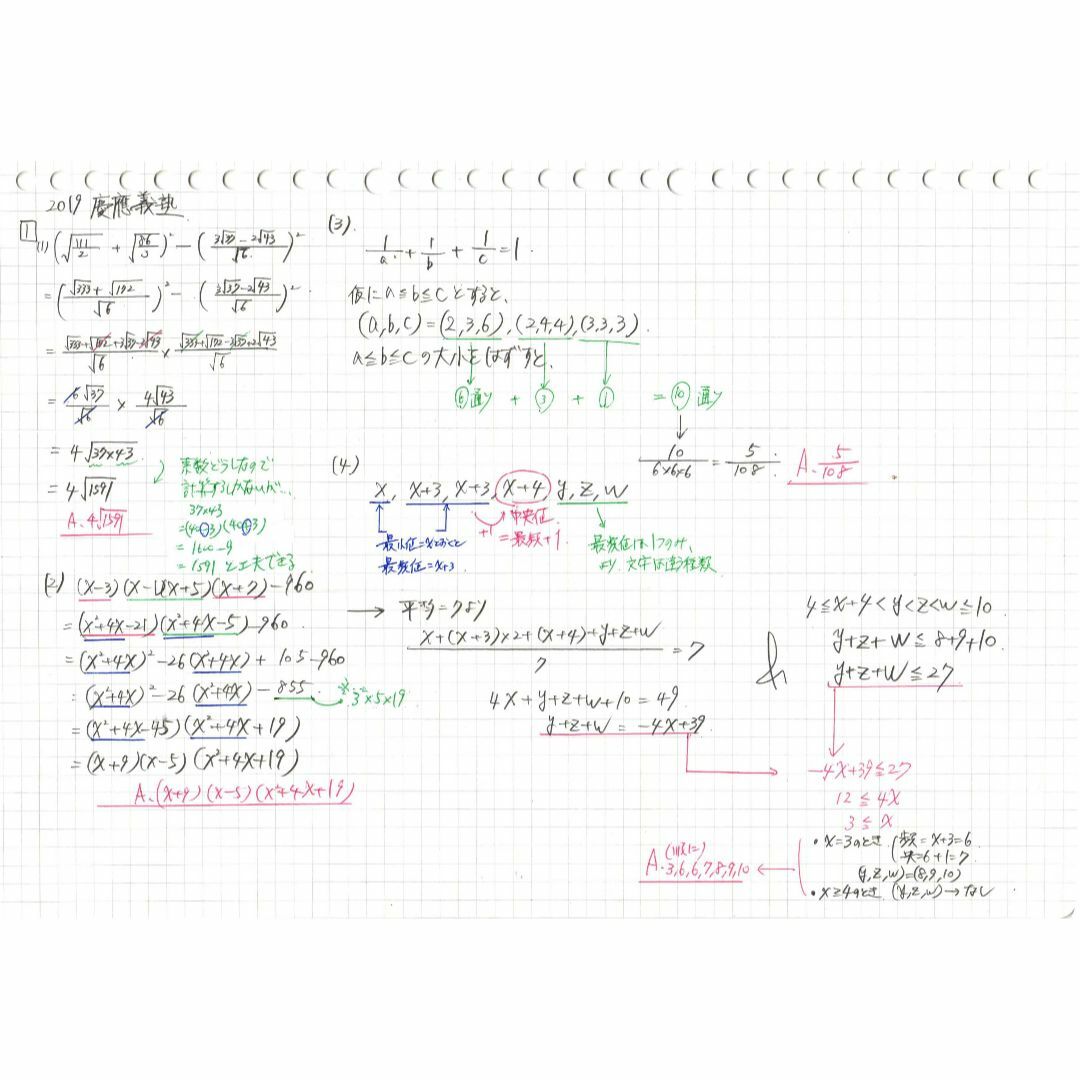 2019 慶應義塾
1
(1) (√(111/2) + √(86/3))² − ((3√37 − 2√43)/√6)²
= ((√333 + √172)/√6)² − ((3√37 − 2√43)/√6)²
= (√333 + √172 + 3√37 − 2√43)/√6 × (√333 + √172 − 3√37 + 2√43)/√6
= 6√37/√6 × 4√43/√6
= 4√(37×43)
= 4√1591
A. 4√1591
素数どうしなので
計算するしかないが…
37×43
=(40−3)(40+3)
= 1600−9
= 1591 と工夫できる
(2) (x−3)(x−1)(x+5)(x+7)−960
= (x²+4x−21)(x²+4x−5)−960
= (x²+4x)²−26(x²+4x)+105−960
= (x²+4x)²−26(x²+4x)−855
※ 3²×5×19
= (x²+4x−45)(x²+4x+19)
= (x+9)(x−5)(x²+4x+19)
A. (x+9)(x−5)(x²+4x+19)
(3).
1/a + 1/b + 1/c = 1.
仮に a≦b≦c とすると、
(a,b,c) = (2,3,6), (2,4,4), (3,3,3).
a≦b≦c の大小をはずすと、
⑥通り + ③ + ① = ⑩通り
10/(6×6×6) = 5/108. A. 5/108
(4)
x, x+3, x+3, x+4, y, z, w
最小値=xとおくと
最頻値=x+3.
+1
中央値
=最頻+1.
最頻値は1つのみ、
より、文字は自然数
→ 平均=7より
(x+(x+3)×2+(x+4)+y+z+w)/7 = 7
4x+y+z+w+10 = 49
y+z+w = −4x+39
&
4≦x+4<y<z<w≦10.
y+z+w ≦ 8+9+10.
y+z+w ≦ 27
−4x+39≦27
12 ≦ 4x
3 ≦ x
・x=3のとき (最頻=x+3=6
中=6+1=7
(y,z,w)=(8,9,10)
・x≧4のとき (y,z,w)→なし
(順に)
A. 3,6,6,7,8,9,10 ←